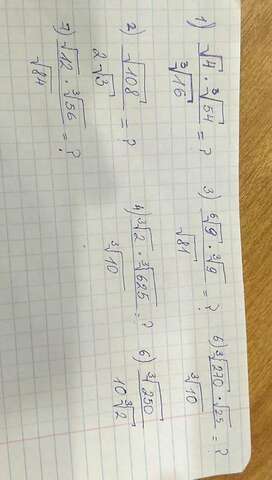 1) \frac{\sqrt{4} \cdot \sqrt[3]{54}}{\sqrt[3]{16}} = ? 3) \frac{\sqrt[6]{9} \cdot \sqrt[3]{9}}{\sqrt{81}} = ? 6) \frac{\sqrt[3]{270} \cdot \sqrt{25}}{\sqrt[3]{10}} = ?
2) \frac{\sqrt{108}}{2\sqrt{3}} = ? 4) \frac{\sqrt[3]{2} \cdot \sqrt[3]{625}}{\sqrt[3]{10}} = ? 6) \frac{\sqrt[3]{250}}{10\sqrt[3]{2}}
7) \frac{\sqrt{12} \cdot \sqrt[3]{56}}{\sqrt{84}} = ?